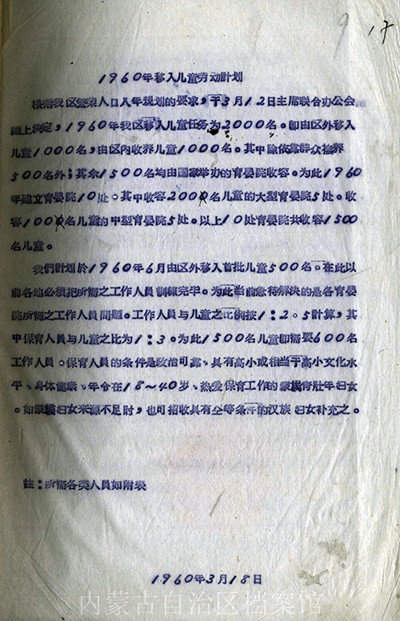 9 17
1960年移入儿童劳动计划
根据我区繁荣人口八年规划的要求，于3月12日主席联合办公会
上决定，1960年我区移入儿童任务为2000名。即由区外移入
儿童1000名，由区内收养儿童1000名。其中除依靠群众抚养
500名外；其余1500名均由国家举办的育婴院收容。为此1960
年建立育婴院10处。其中收容200名儿童的大型育婴院5处。收
容100名儿童的中型育婴院5处。以上10处育婴院共收容1500
名儿童。
我們計划於1960年6月由区外移入首批儿童500名。在此以
前各地必須把所需之工作人員訓練完毕。为此当前急待解決的是各育婴
院所需之工作人員問題。工作人員与儿童之比例按1：2.5計算，其
中保育人員与儿童之比为1：3。为此1500名儿童即需要600名
工作人員。保育人員的条件是政治可靠、具有高小或相当于高小文化水
平、身体健康、年令在18~40岁、热爱保育工作的蒙族青壮年妇女
。如蒙族妇女来源不足时，也可招收具有仝等条件的汉族 妇女补充之。
註：所需各类人員如附表
1960年3月18日
内蒙古自治区档案馆